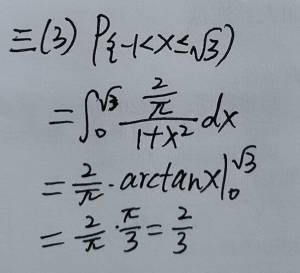 三(3) P{-1<X≤√3)
=∫₀^√3 (2/π)/(1+x²) dx
=2/π·arctanx|₀^√3
=2/π·π/3=2/3